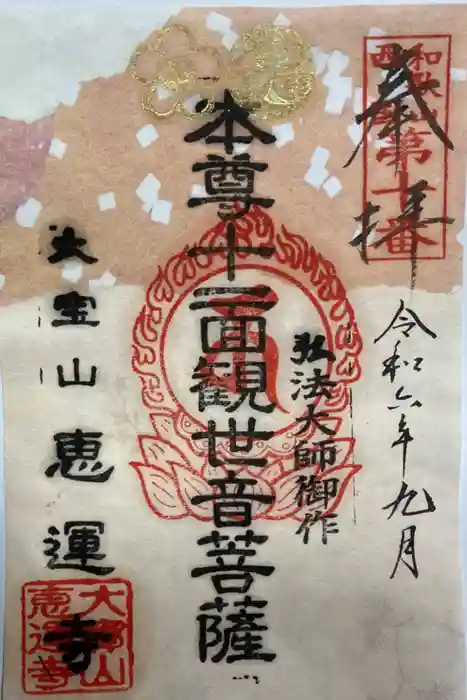 和歌山
西国
第十番
奉拝
令和六年九月
弘法大師御作
本尊十一面観世音菩薩
大宝山恵運寺
大宝山
恵運寺